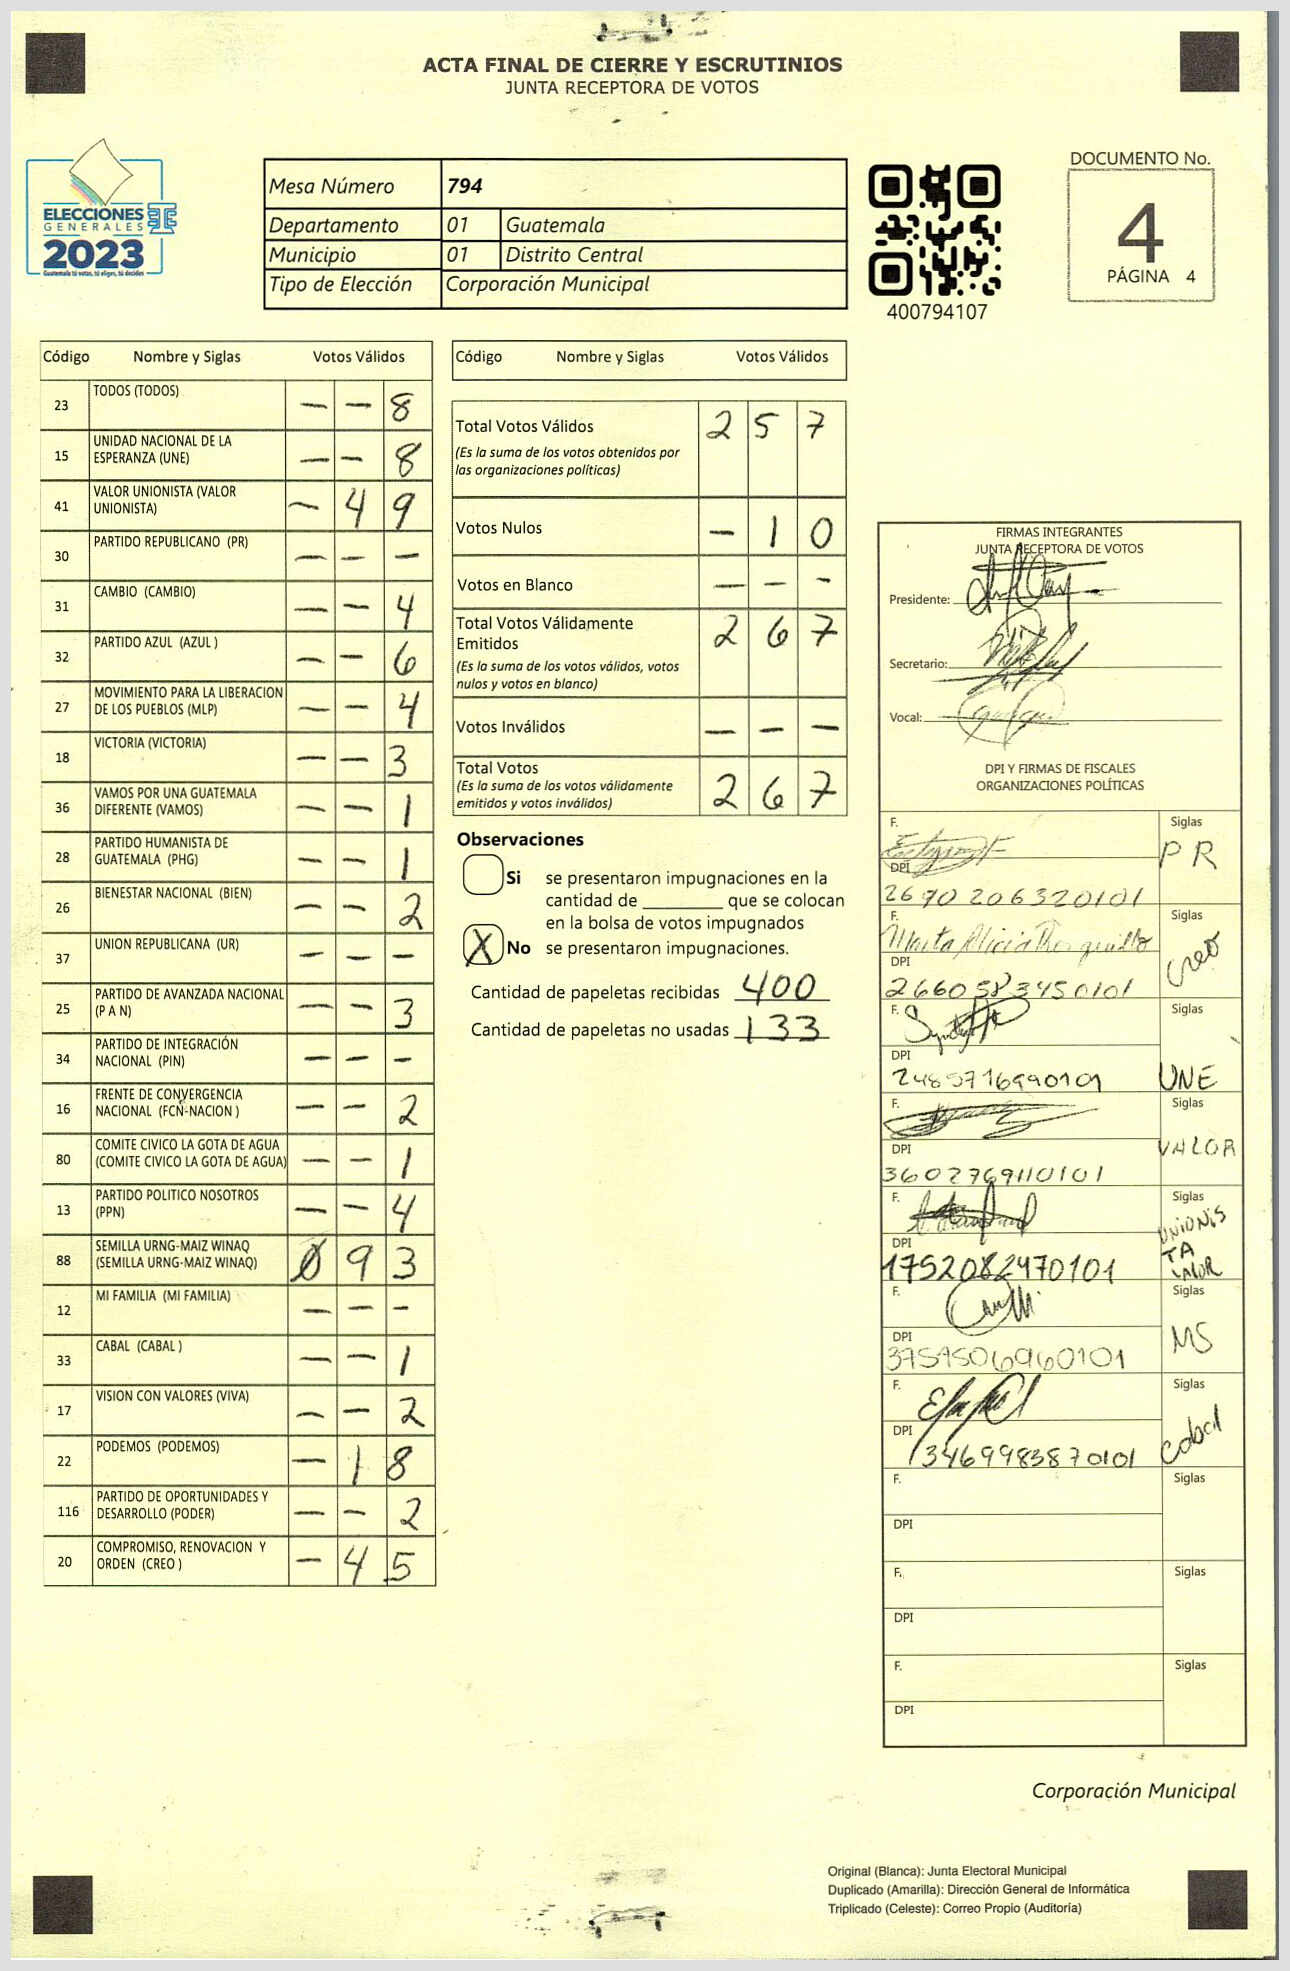 ACTA FINAL DE CIERRE Y ESCRUTINIOS
JUNTA RECEPTORA DE VOTOS
ELECCIONES
GENERALES
2023
Guatemala tú votas, tú eliges, tú decides
Mesa Número 794
Departamento 01 Guatemala
Municipio 01 Distrito Central
Tipo de Elección Corporación Municipal
400794107
DOCUMENTO No.
4
PÁGINA 4
Código Nombre y Siglas Votos Válidos
23 TODOS (TODOS) — — 8
15 UNIDAD NACIONAL DE LA
ESPERANZA (UNE) — — 8
41 VALOR UNIONISTA (VALOR
UNIONISTA) — 4 9
30 PARTIDO REPUBLICANO (PR) — — —
31 CAMBIO (CAMBIO) — — 4
32 PARTIDO AZUL (AZUL ) — — 6
27 MOVIMIENTO PARA LA LIBERACION
DE LOS PUEBLOS (MLP) — — 4
18 VICTORIA (VICTORIA) — — 3
36 VAMOS POR UNA GUATEMALA
DIFERENTE (VAMOS) — — 1
28 PARTIDO HUMANISTA DE
GUATEMALA (PHG) — — 1
26 BIENESTAR NACIONAL (BIEN) — — 2
37 UNION REPUBLICANA (UR) — — —
25 PARTIDO DE AVANZADA NACIONAL
(P A N) — — 3
34 PARTIDO DE INTEGRACIÓN
NACIONAL (PIN) — — —
16 FRENTE DE CONVERGENCIA
NACIONAL (FCN-NACION ) — — 2
80 COMITE CIVICO LA GOTA DE AGUA
(COMITE CIVICO LA GOTA DE AGUA) — — 1
13 PARTIDO POLITICO NOSOTROS
(PPN) — — 4
88 SEMILLA URNG-MAIZ WINAQ
(SEMILLA URNG-MAIZ WINAQ) 0 9 3
12 MI FAMILIA (MI FAMILIA) — — —
33 CABAL (CABAL ) — — 1
17 VISION CON VALORES (VIVA) — — 2
22 PODEMOS (PODEMOS) — 1 8
116 PARTIDO DE OPORTUNIDADES Y
DESARROLLO (PODER) — — 2
20 COMPROMISO, RENOVACION Y
ORDEN (CREO ) — 4 5
Código Nombre y Siglas Votos Válidos
Total Votos Válidos 2 5 7
(Es la suma de los votos obtenidos por
las organizaciones políticas)
Votos Nulos — 1 0
Votos en Blanco — — —
Total Votos Válidamente
Emitidos 2 6 7
(Es la suma de los votos válidos, votos
nulos y votos en blanco)
Votos Inválidos — — —
Total Votos 2 6 7
(Es la suma de los votos válidamente
emitidos y votos inválidos)
Observaciones
Si se presentaron impugnaciones en la
cantidad de ________ que se colocan
en la bolsa de votos impugnados
X No se presentaron impugnaciones.
Cantidad de papeletas recibidas 400
Cantidad de papeletas no usadas 133
FIRMAS INTEGRANTES
JUNTA RECEPTORA DE VOTOS
Presidente:
Secretario:
Vocal:
DPI Y FIRMAS DE FISCALES
ORGANIZACIONES POLÍTICAS
F. Siglas
PR
DPI
2670206320101
F. Siglas
Marta Alicia
creo
DPI
2660583450101
F. Siglas
DPI
2485716990101 UNE
F. Siglas
VALOR
DPI
3602769110101
F. Siglas
UNIONIS
TA
VALOR
DPI
1752082470101
F. Siglas
MS
DPI
3757506960101
F. Siglas
cabal
DPI
3469983870101
F. Siglas
DPI
F. Siglas
DPI
F. Siglas
DPI
Corporación Municipal
Original (Blanca): Junta Electoral Municipal
Duplicado (Amarilla): Dirección General de Informática
Triplicado (Celeste): Correo Propio (Auditoría)